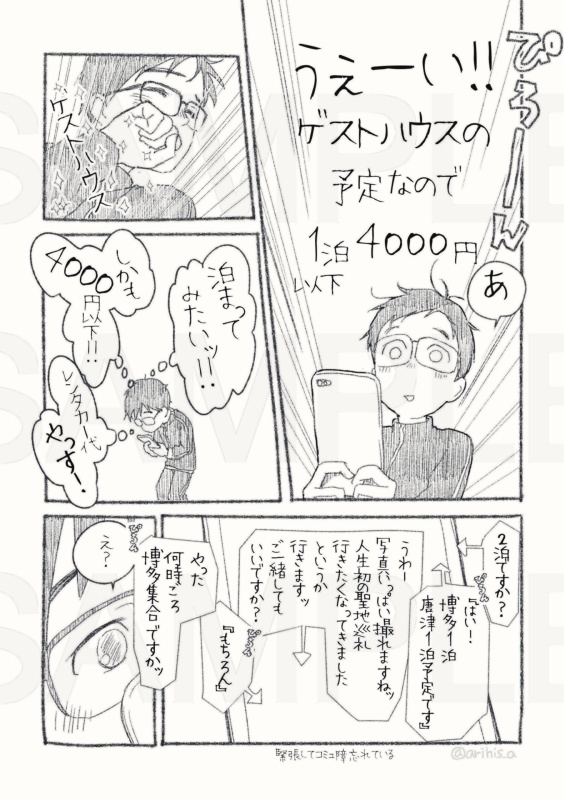 ぴろーん
うぇーい!!
ゲストハウスの
予定なので
1泊4000円
以下
あ
ゲストハウス
泊まって
みたいッ!!
しかも
4000
円以下!!
レンタカー代
やっすー!
2泊ですか?
ぴろん
『はい!
博多1泊
唐津1泊予定です』
うわー
写真いっぱい撮れますねッ
人生初の聖地巡礼
行きたくなってきました
というか
行きますッ
ご一緒しても
いいですか?
ぴろん
『もちろん』
やった
何時ころ
博多集合ですかッ
ぴろん
え?
緊張してコミュ障忘れている
@arihis.a
SAMPLE
SAMPLE
SAMPLE